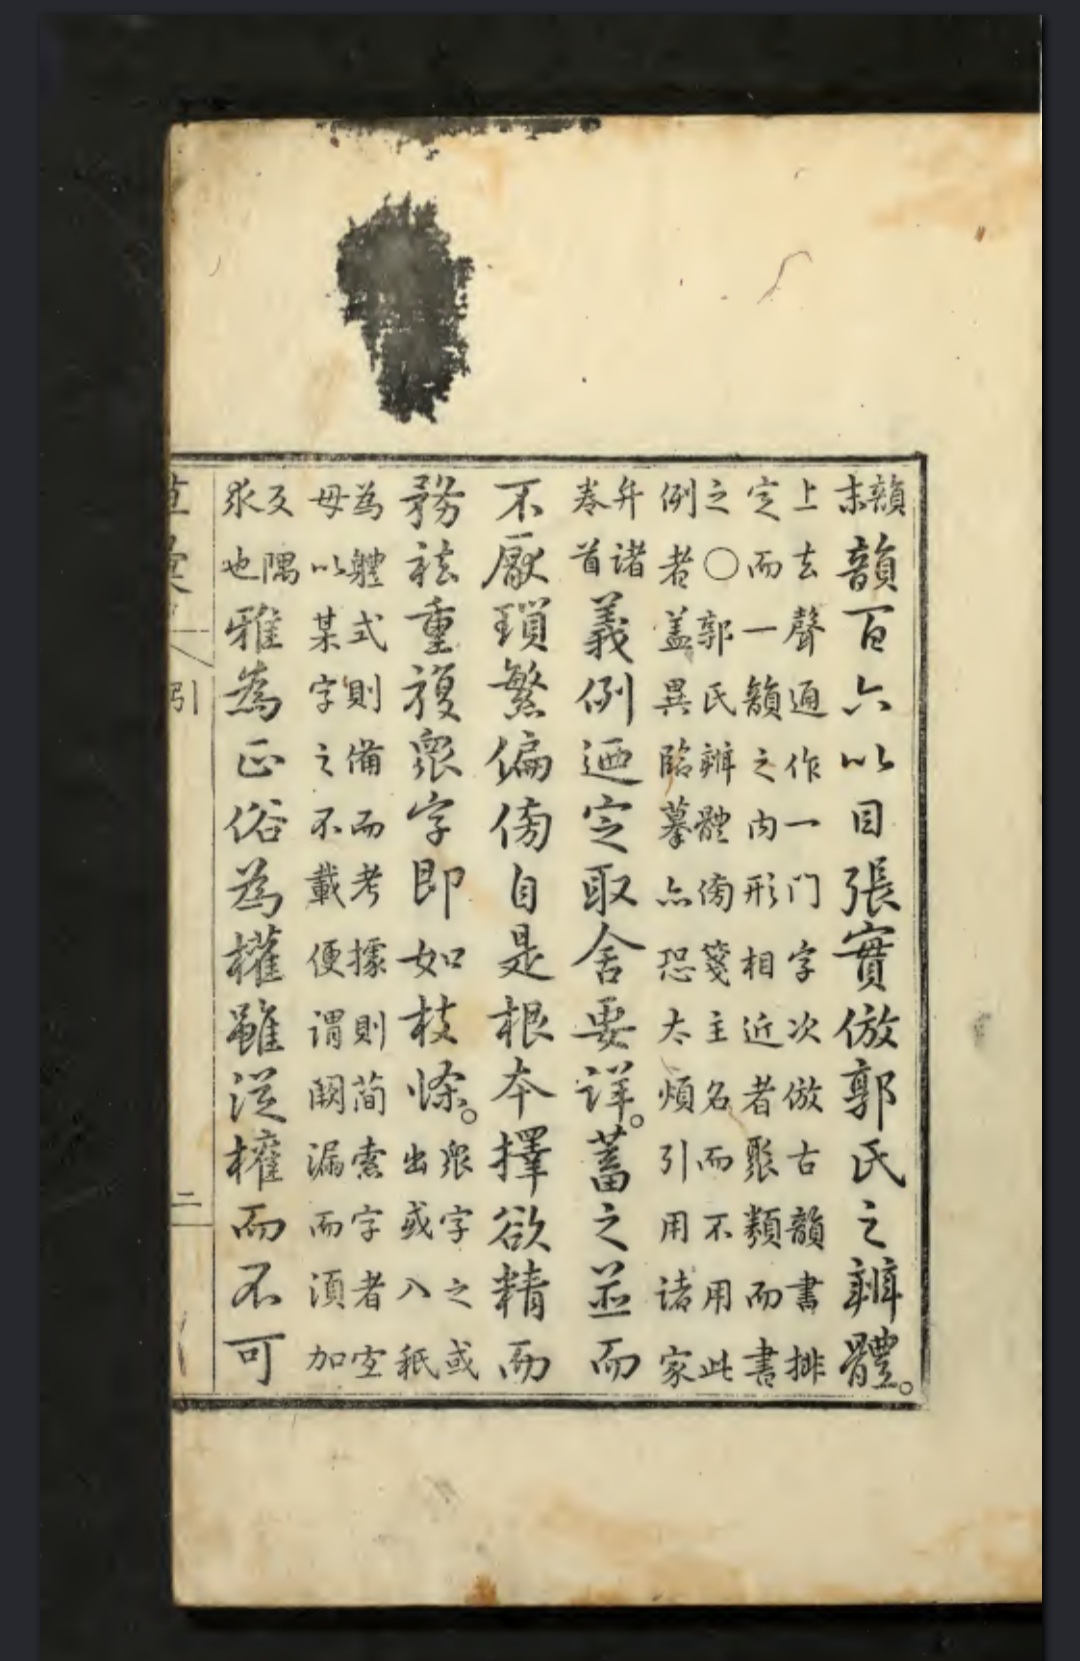 韻
末
韻百六以目張實倣郭氏之辨體。
上去聲通作一门字次倣古韻書排
定而一韻之內形相近者聚類而書
之○郭氏辨體傍箋主名而不用此
例者盖異臨摹亦恐太煩引用諸家
弁諸
卷首
義例迺定取舍要詳。蓄之並而
不厭瑣繁偏傍自是根本擇欲精而
務祛重複衆字即如枝條。
衆字之或
出或入秖
為軆式則備而考據則简索字者宜
毋以某字之不載便谓闕漏而須加
反隅
求也
雅為正俗為權雖從權而不可
引
二